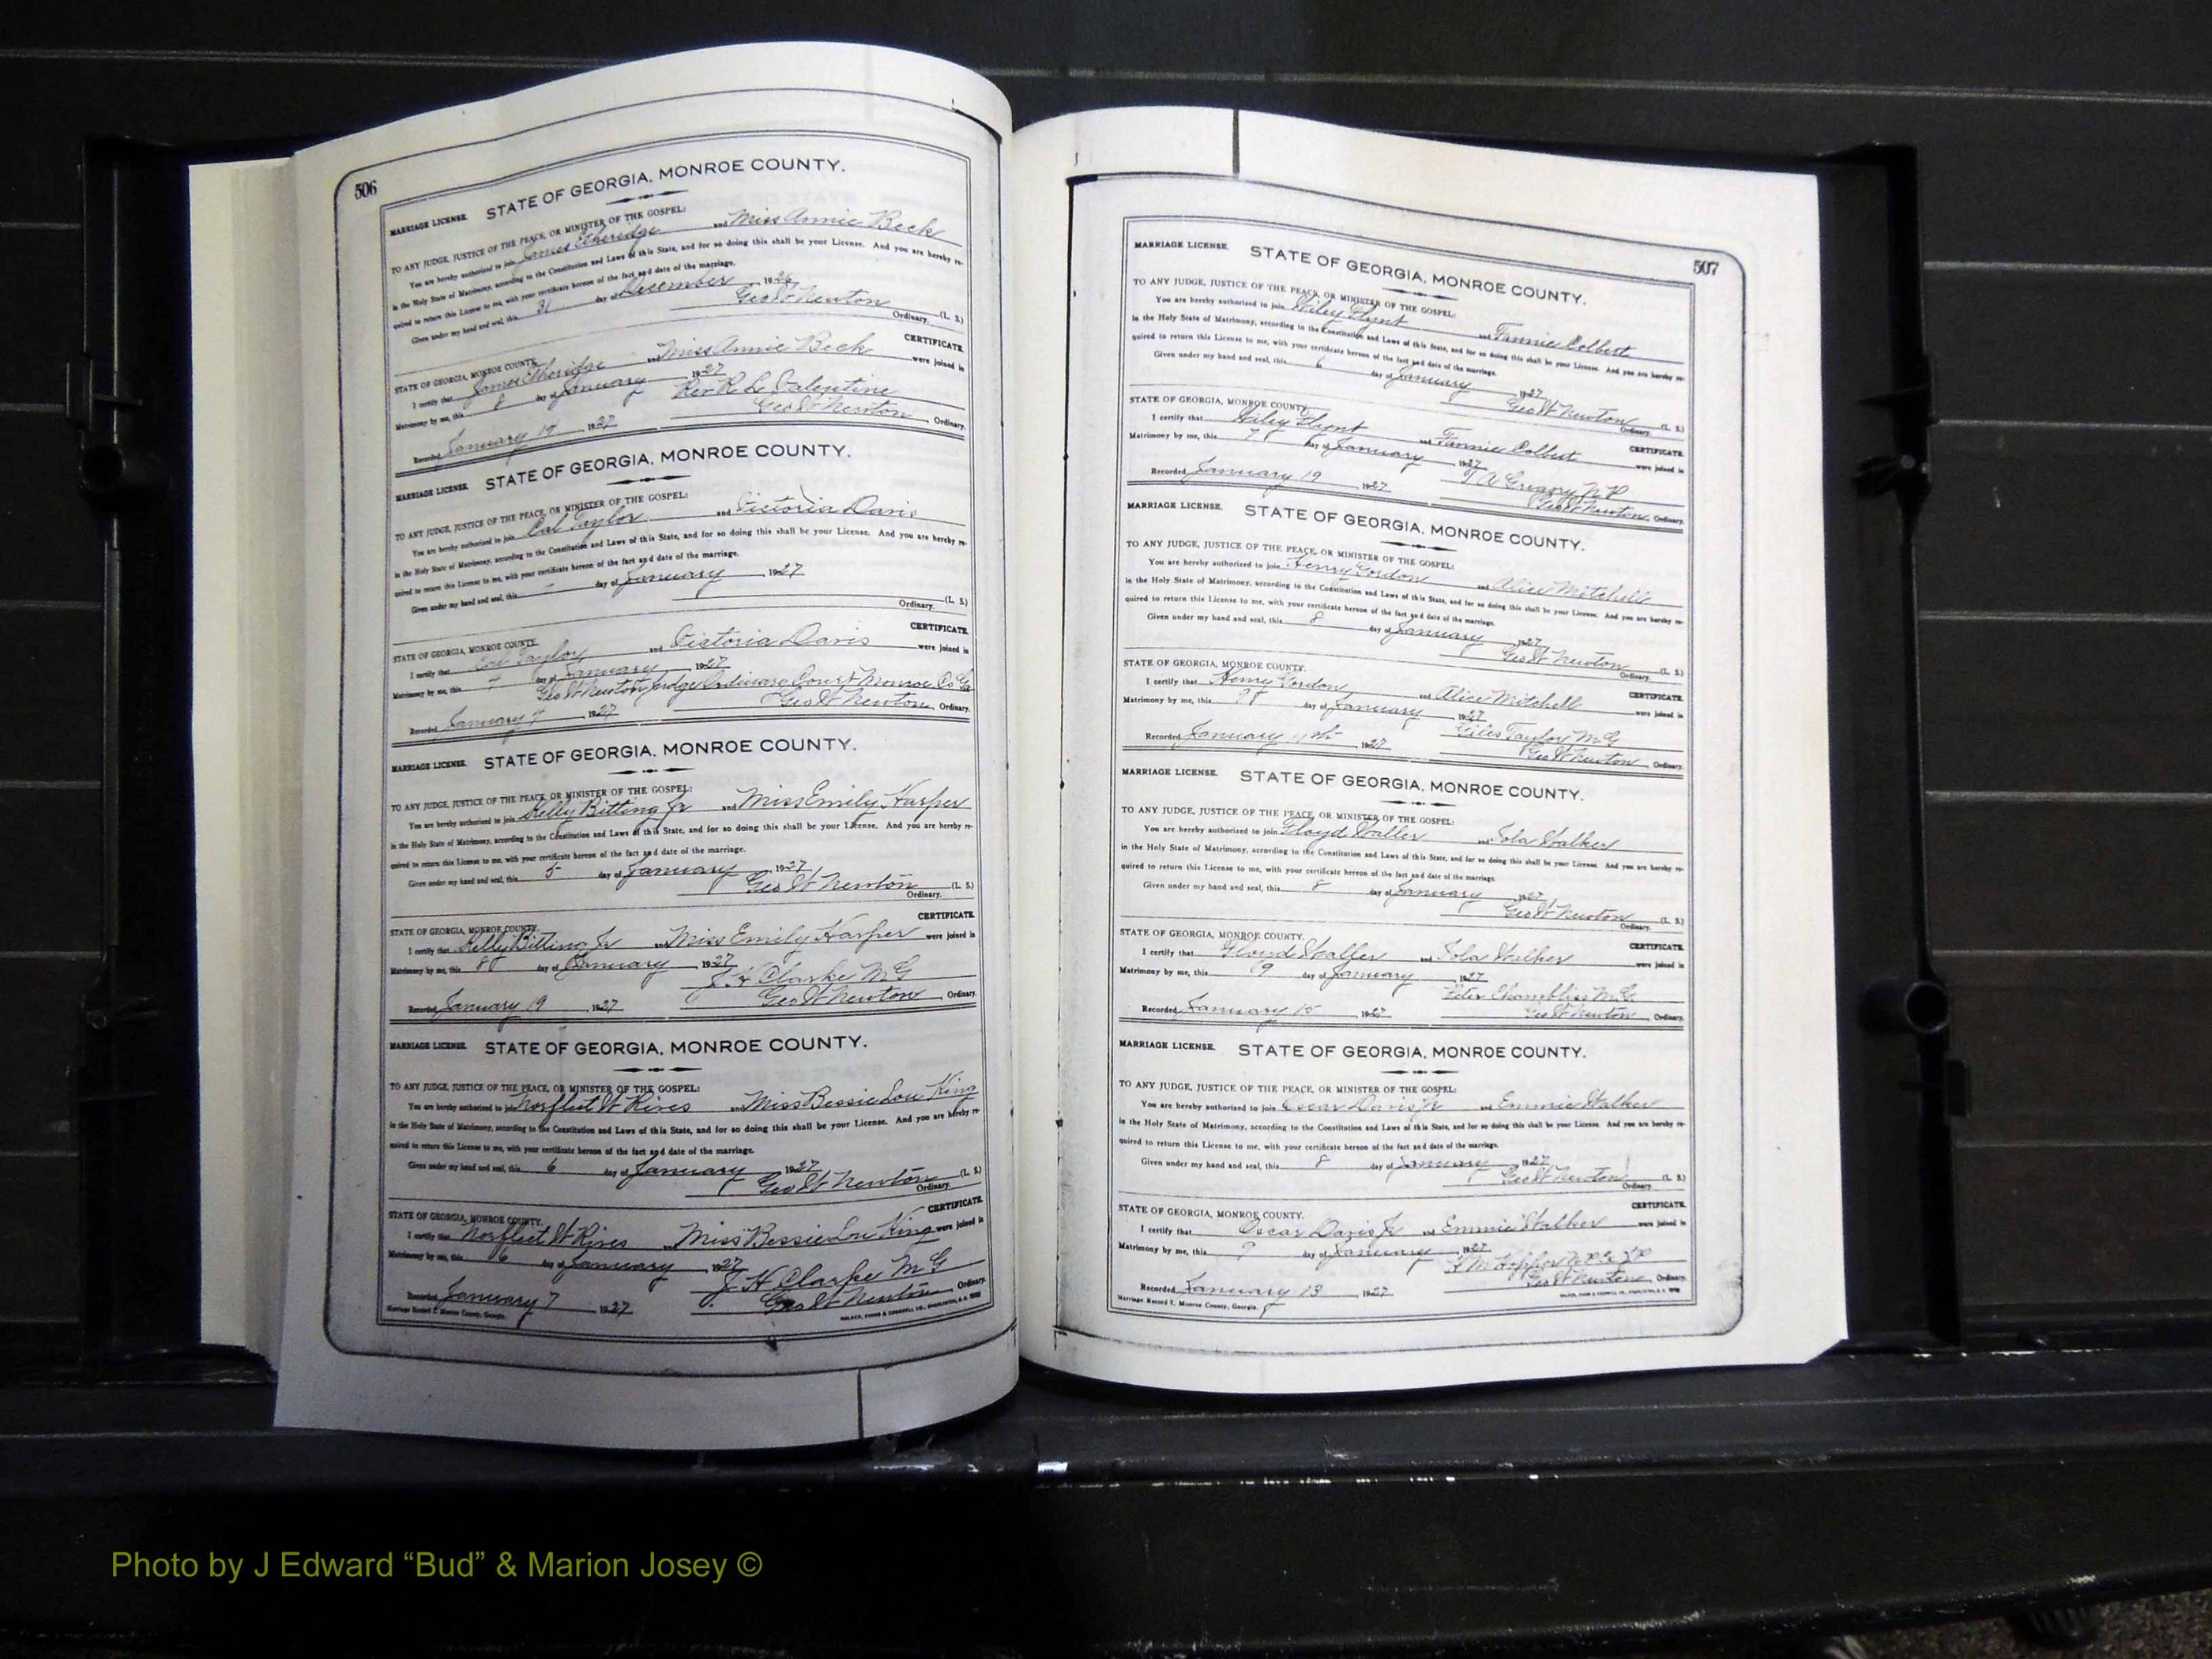 506
MARRIAGE LICENSE. STATE OF GEORGIA, MONROE COUNTY.
TO ANY JUDGE, JUSTICE OF THE PEACE, OR MINISTER OF THE GOSPEL:
You are hereby authorized to join James Etheridge and Miss Annie Beck
in the Holy State of Matrimony, according to the Constitution and Laws of this State, and for so doing this shall be your License. And you are hereby re-
quired to return this License to me, with your certificate hereon of the fact and date of the marriage.
Given under my hand and seal, this 31 day of December 1926
Geo W Newton (L. S.)
Ordinary.
STATE OF GEORGIA, MONROE COUNTY. CERTIFICATE.
I certify that James Etheridge and Miss Annie Beck were joined in
Matrimony by me, this 8 day of January 1927
Rev R. L. Valentine
Recorded January 19 1927 Geo W Newton Ordinary.
MARRIAGE LICENSE. STATE OF GEORGIA, MONROE COUNTY.
TO ANY JUDGE, JUSTICE OF THE PEACE, OR MINISTER OF THE GOSPEL:
You are hereby authorized to join Cal Taylor and Victoria Davis
in the Holy State of Matrimony, according to the Constitution and Laws of this State, and for so doing this shall be your License. And you are hereby re-
quired to return this License to me, with your certificate hereon of the fact and date of the marriage.
Given under my hand and seal, this day of January 1927
(L. S.)
Ordinary.
STATE OF GEORGIA, MONROE COUNTY. CERTIFICATE.
I certify that Cal Taylor and Victoria Davis were joined in
Matrimony by me, this 4 day of January 1927
Geo W Newton Judge Ordinary Court Monroe Co Ga
Recorded January 4 1927 Geo W Newton Ordinary.
MARRIAGE LICENSE. STATE OF GEORGIA, MONROE COUNTY.
TO ANY JUDGE, JUSTICE OF THE PEACE, OR MINISTER OF THE GOSPEL:
You are hereby authorized to join Kelly Bitting Jr and Miss Emily Harper
in the Holy State of Matrimony, according to the Constitution and Laws of this State, and for so doing this shall be your License. And you are hereby re-
quired to return this License to me, with your certificate hereon of the fact and date of the marriage.
Given under my hand and seal, this 5 day of January 1927
Geo W Newton (L. S.)
Ordinary.
STATE OF GEORGIA, MONROE COUNTY. CERTIFICATE.
I certify that Kelly Bitting Jr and Miss Emily Harper were joined in
Matrimony by me, this 8 day of January 1927
J H Clarke M G
Recorded January 19 1927 Geo W Newton Ordinary.
MARRIAGE LICENSE. STATE OF GEORGIA, MONROE COUNTY.
TO ANY JUDGE, JUSTICE OF THE PEACE, OR MINISTER OF THE GOSPEL:
You are hereby authorized to join Norfleet W Rives and Miss Bessie Lou King
in the Holy State of Matrimony, according to the Constitution and Laws of this State, and for so doing this shall be your License. And you are hereby re-
quired to return this License to me, with your certificate hereon of the fact and date of the marriage.
Given under my hand and seal, this 6 day of January 1927
Geo W Newton (L. S.)
Ordinary.
STATE OF GEORGIA, MONROE COUNTY. CERTIFICATE.
I certify that Norfleet W Rives and Miss Bessie Lou King were joined in
Matrimony by me, this 6 day of January 1927
J H Clarke M G
Recorded January 7 1927 Geo W Newton Ordinary.
Marriage Record T, Monroe County, Georgia.
507
MARRIAGE LICENSE. STATE OF GEORGIA, MONROE COUNTY.
TO ANY JUDGE, JUSTICE OF THE PEACE, OR MINISTER OF THE GOSPEL:
You are hereby authorized to join Wiley Flynt and Fannie Colbert
in the Holy State of Matrimony, according to the Constitution and Laws of this State, and for so doing this shall be your License. And you are hereby re-
quired to return this License to me, with your certificate hereon of the fact and date of the marriage.
Given under my hand and seal, this 6 day of January 1927
Geo W Newton (L. S.)
Ordinary.
STATE OF GEORGIA, MONROE COUNTY. CERTIFICATE.
I certify that Wiley Flynt and Fannie Colbert were joined in
Matrimony by me, this day of January 1927
N P
Recorded January 19 1927 Geo W Newton Ordinary.
MARRIAGE LICENSE. STATE OF GEORGIA, MONROE COUNTY.
TO ANY JUDGE, JUSTICE OF THE PEACE, OR MINISTER OF THE GOSPEL:
You are hereby authorized to join Henry Gordon and Alice Mitchell
in the Holy State of Matrimony, according to the Constitution and Laws of this State, and for so doing this shall be your License. And you are hereby re-
quired to return this License to me, with your certificate hereon of the fact and date of the marriage.
Given under my hand and seal, this 8 day of January 1927
Geo W Newton (L. S.)
Ordinary.
STATE OF GEORGIA, MONROE COUNTY. CERTIFICATE.
I certify that Henry Gordon and Alice Mitchell were joined in
Matrimony by me, this day of January 1927
Giles Taylor M G
Recorded January 1927 Geo W Newton Ordinary.
MARRIAGE LICENSE. STATE OF GEORGIA, MONROE COUNTY.
TO ANY JUDGE, JUSTICE OF THE PEACE, OR MINISTER OF THE GOSPEL:
You are hereby authorized to join Floyd Waller and Iola Walker
in the Holy State of Matrimony, according to the Constitution and Laws of this State, and for so doing this shall be your License. And you are hereby re-
quired to return this License to me, with your certificate hereon of the fact and date of the marriage.
Given under my hand and seal, this 8 day of January 1927
Geo W Newton (L. S.)
Ordinary.
STATE OF GEORGIA, MONROE COUNTY. CERTIFICATE.
I certify that Floyd Waller and Iola Walker were joined in
Matrimony by me, this 9 day of January 1927
Peter Chambliss M.G.
Recorded January 15 1927 Geo W Newton Ordinary.
MARRIAGE LICENSE. STATE OF GEORGIA, MONROE COUNTY.
TO ANY JUDGE, JUSTICE OF THE PEACE, OR MINISTER OF THE GOSPEL:
You are hereby authorized to join Oscar Davis Jr and Emmie Walker
in the Holy State of Matrimony, according to the Constitution and Laws of this State, and for so doing this shall be your License. And you are hereby re-
quired to return this License to me, with your certificate hereon of the fact and date of the marriage.
Given under my hand and seal, this 8 day of January 1927
Geo W Newton (L. S.)
Ordinary.
STATE OF GEORGIA, MONROE COUNTY. CERTIFICATE.
I certify that Oscar Davis Jr and Emmie Walker were joined in
Matrimony by me, this 9 day of January 1927
Recorded January 13 1927 Geo W Newton Ordinary.
Marriage Record T, Monroe County, Georgia.
Photo by J Edward “Bud” & Marion Josey ©